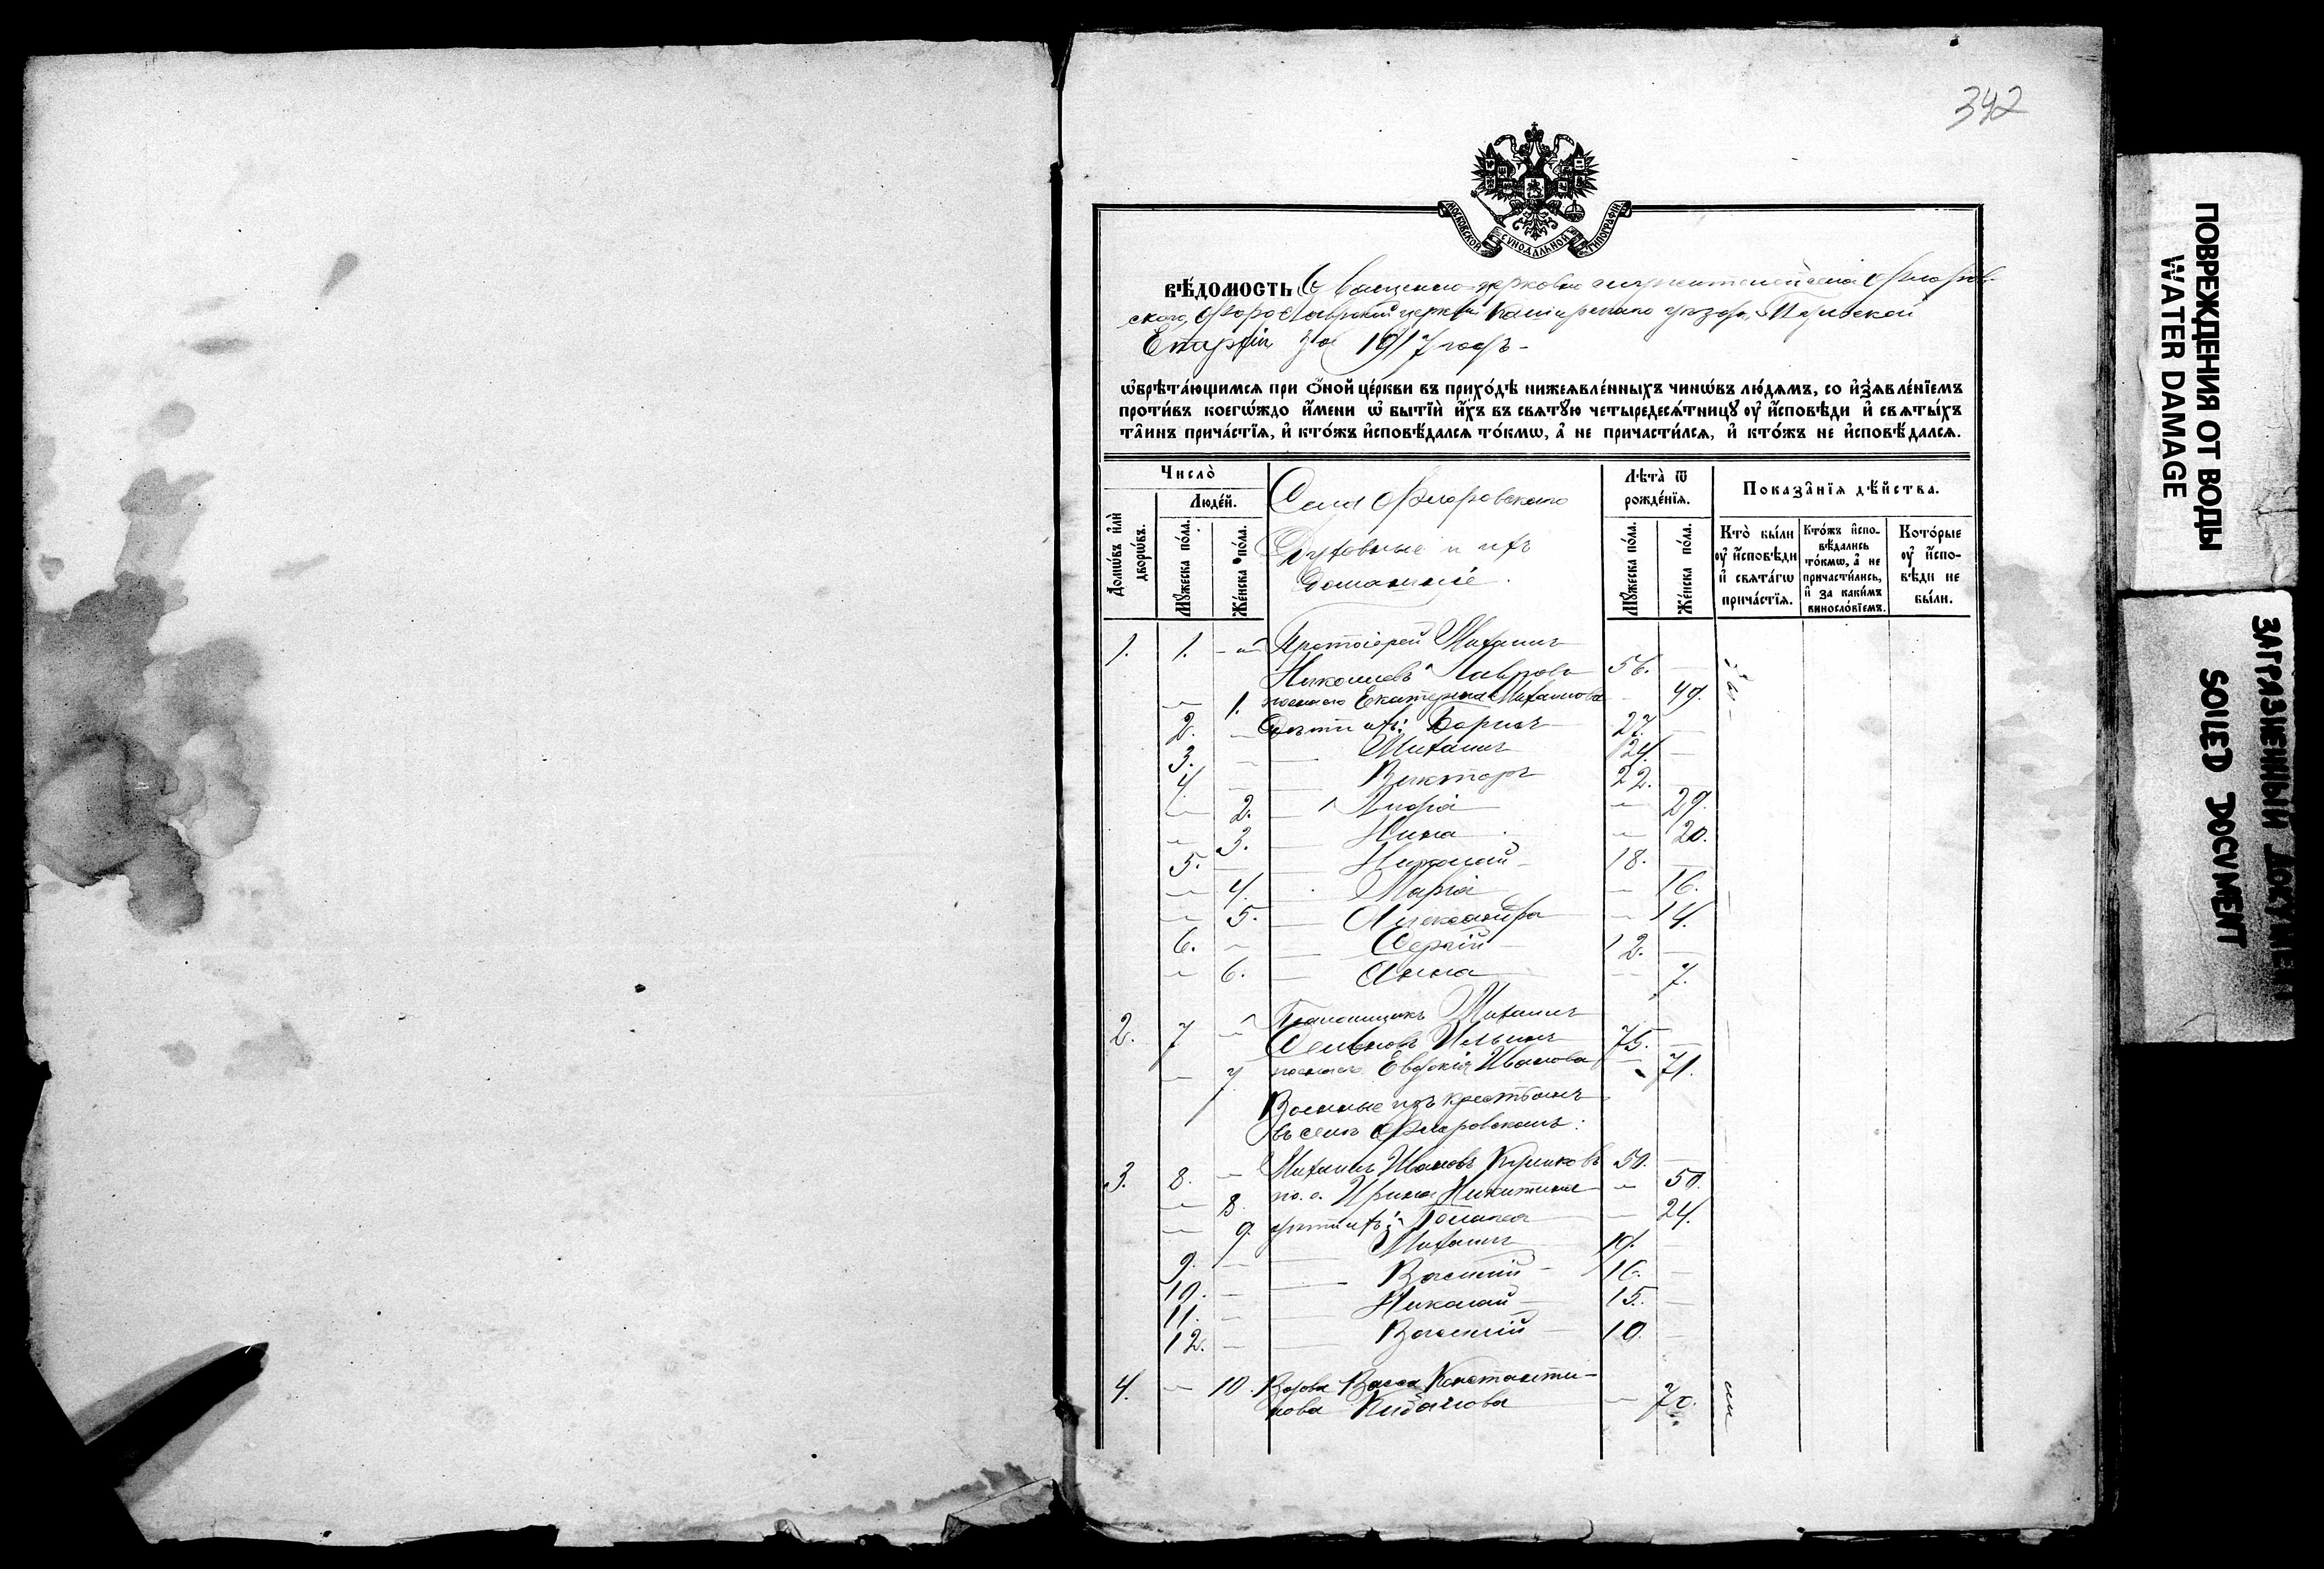 342
МОСКОВСКОЙ СУНОДАЛЬНОЙ ТИПОГРАФІИ
ВѢ́ДОМОСТЬ
Флоровской церкви Каширскаго уѣзда, Тульской
Епархіи за 1917 годъ
ѡ҆брѣта́ющимся при ѻ҆́ной це́ркви въ прихо́дѣ нижеявле́нныхъ чинѡ́въ лю́дямъ, со и҆з̾явле́нїемъ
проти́въ коегѡ́ждо и҆́мени ѡ҆ бытїѝ и҆́хъ въ свѧту́ю четыредесѧ́тницꙋ ᲂу҆ и҆́сповѣди и҆ свѧты́хъ
та̑инъ прича́стїѧ, и҆ кто́жъ и҆сповѣ́дался то́кмѡ, а҆ не причасти́лся, и҆ кто́жъ не и҆сповѣ́дался.
Число̀
Домѡ́въ и҆лѝ дворѡ́въ.
Люде́й.
Мꙋ́жеска по́ла.
Же́нска по́ла.
Села Флоровскаго
Духовные и ихъ
домашніе.
Лѣта̀ ѿ рожде́нїѧ.
Мꙋ́жеска по́ла.
Же́нска по́ла.
Показа̑нїѧ дѣ́йства.
Кто̀ бы́ли ᲂу҆ и҆́сповѣди и҆ свѧта́гѡ прича́стїѧ.
Кто́жъ и҆спо-вѣ́дались то́кмѡ, а҆ не причасти́лись, и҆ за каки́мъ винослѡ́вїемъ.
Кото́рые ᲂу҆ и҆́спо-вѣди не бы́ли.
1. 1. — Протоіерей Михаилъ
Николаевъ Лавровъ 56. —
— 1. жена его Екатерина Михаилова — 49.
2. — Дѣти ихъ: Борисъ 27. —
3. — Михаилъ 24. —
4. — Викторъ 22. —
— 2. Лидія — 29.
— 3. Нина — 20.
5. — Николай 18. —
— 4. Марія — 16.
— 5. Александра — 14.
6. — Сергій 12. —
— 6. Анна — 7.
2. 7 — Псаломщикъ Михаилъ
Семеновъ Ильинъ 75. —
— 7 жена его Евдокія Иванова — 71.
Военные изъ крестьянъ
въ селѣ Флоровскомъ:
3. 8. — Михаилъ Ивановъ Куликовъ 50. —
— 8 ж. е. Ирина Никитина — 50.
— 9. дѣти ихъ: — 24.
9. — Михаилъ 19. —
10. — Василій 16. —
11. — Николай 15. —
12. — Василій 10. —
4. — 10. Вдова Васса Константи-
нова — 70.
ПОВРЕЖДЕНИЯ ОТ ВОДЫ
WATER DAMAGE
ЗАГРЯЗНЕННЫЙ ДОКУМЕНТ
SOILED DOCUMENT